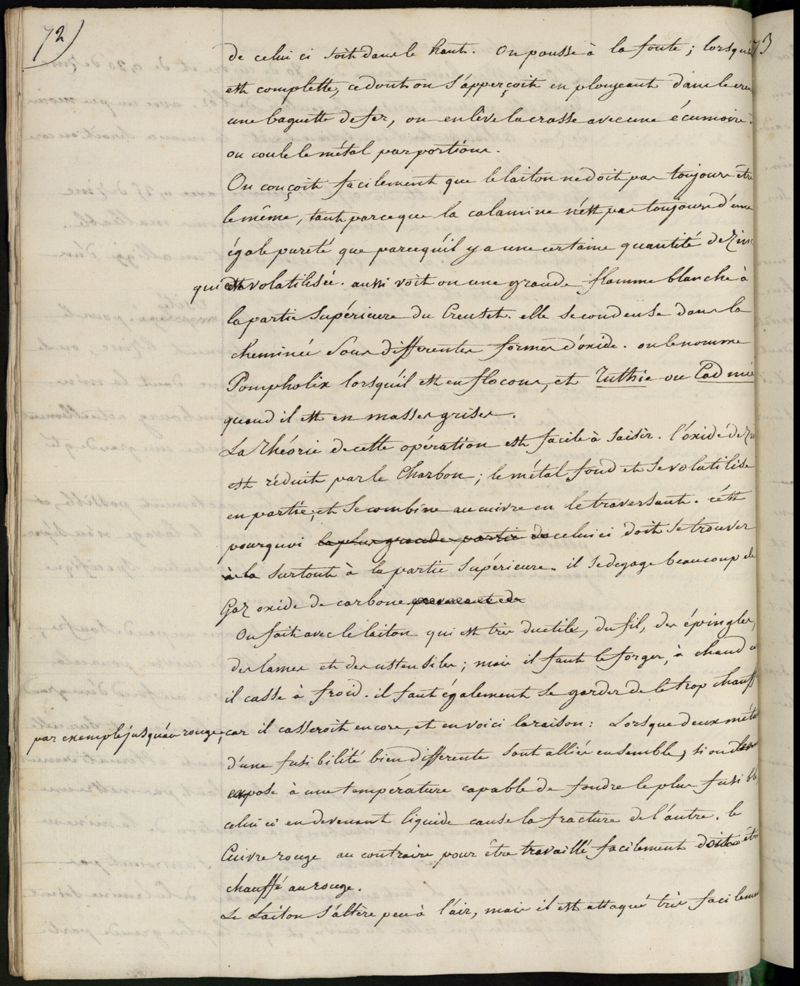 72)
de celui ci soit dans le haut. On pousse à la fonte; lorsque
est complette, ce dont on s'apperçoit en plongeant dans le creu
une baguette de fer, on enlève la crasse avec une écumoire.
on coule le métal par portions.
On conçoit facilement que le laiton ne doit pas toujours être
le même, tant parceque la calamine n'est pas toujours d'une
égale pureté que parcequ'il y a une certaine quantité de Zinc
qui est volatilisée. aussi voit on une grande flamme blanche à
la partie supérieure du Creuset. elle se condense dans la
cheminée sous differentes formes d'oxide. on le nomme
Pompholix lorsqu'il est en flocons, et Tuthie ou Cadmie
quand il est en masses grises.
La théorie de cette opération est facile à saisir. l'oxide de Zin
est réduit par le Charbon; le métal fond et se volatilise
en partie, et se combine au cuivre en le traversant. c'est
pourquoi le plus grande partie de celui ci doit se trouver
à la surtout à la partie supérieure. il se degage beaucoup de
Gaz oxide de carbone provenant de
On fait avec le laiton qui est très ductile, du fil, des épingles,
des lames et des ustensiles; mais il faut le forger, à chaud
il casse à froid. il faut également se garder de le trop chauff
par exemple jusqu'au rouge, car il casseroit encore, et en voici la raison: Lorsque deux méta
d'une fusibilité bien differente sont alliés ensemble, si on les
expose à une température capable de fondre le plus fusible
celui ci en devenant liquide cause la fracture de l'autre. le
Cuivre rouge au contraire pour être travaillé facilement doit être
chauffé au rouge.
Le Laiton s'altère peu à l'air, mais il est attaqué très facilement